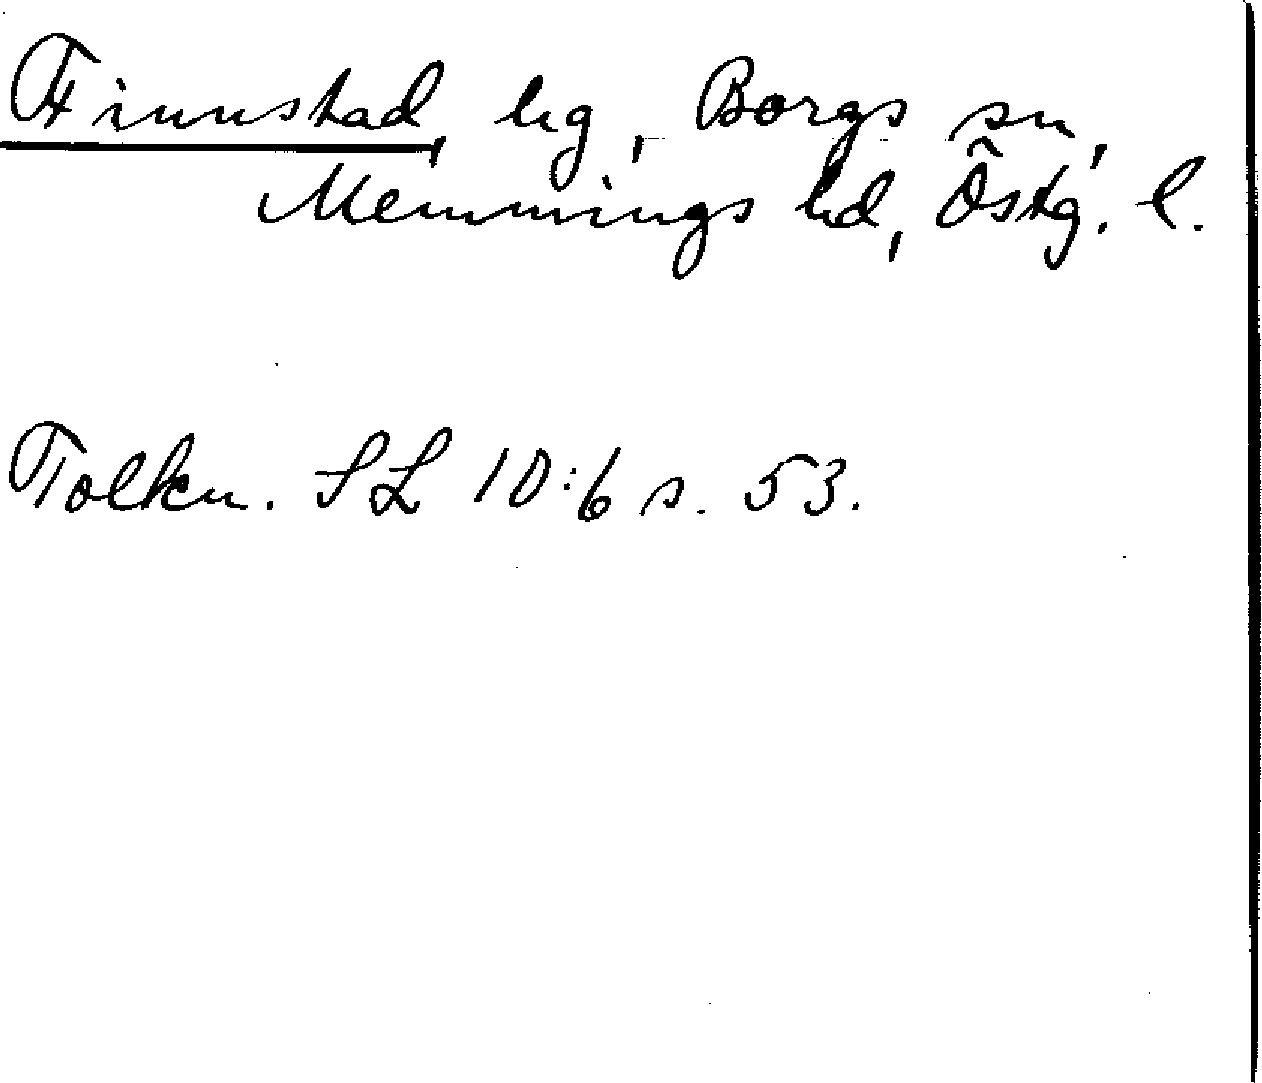 Finnstad, hg, Borgs sn,
Memmings hd, Östg. l.
Tolkn. SL 10:6 s. 53.